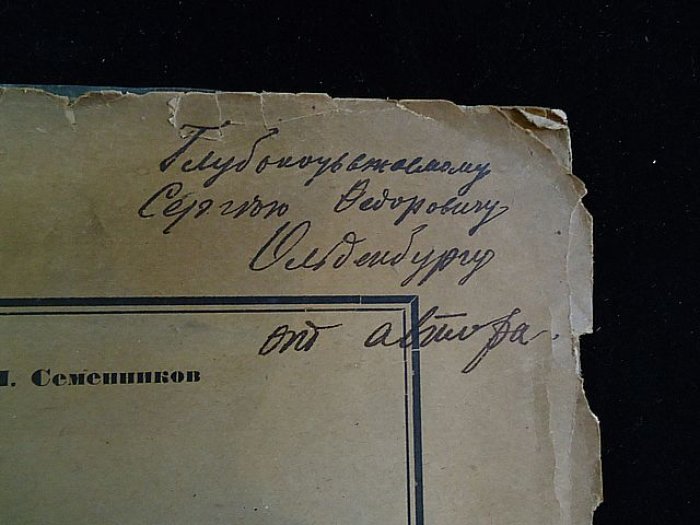 Глубокоуважаемому
Сергѣю Федоровичу
Ольденбургу
от автора.
Семенников